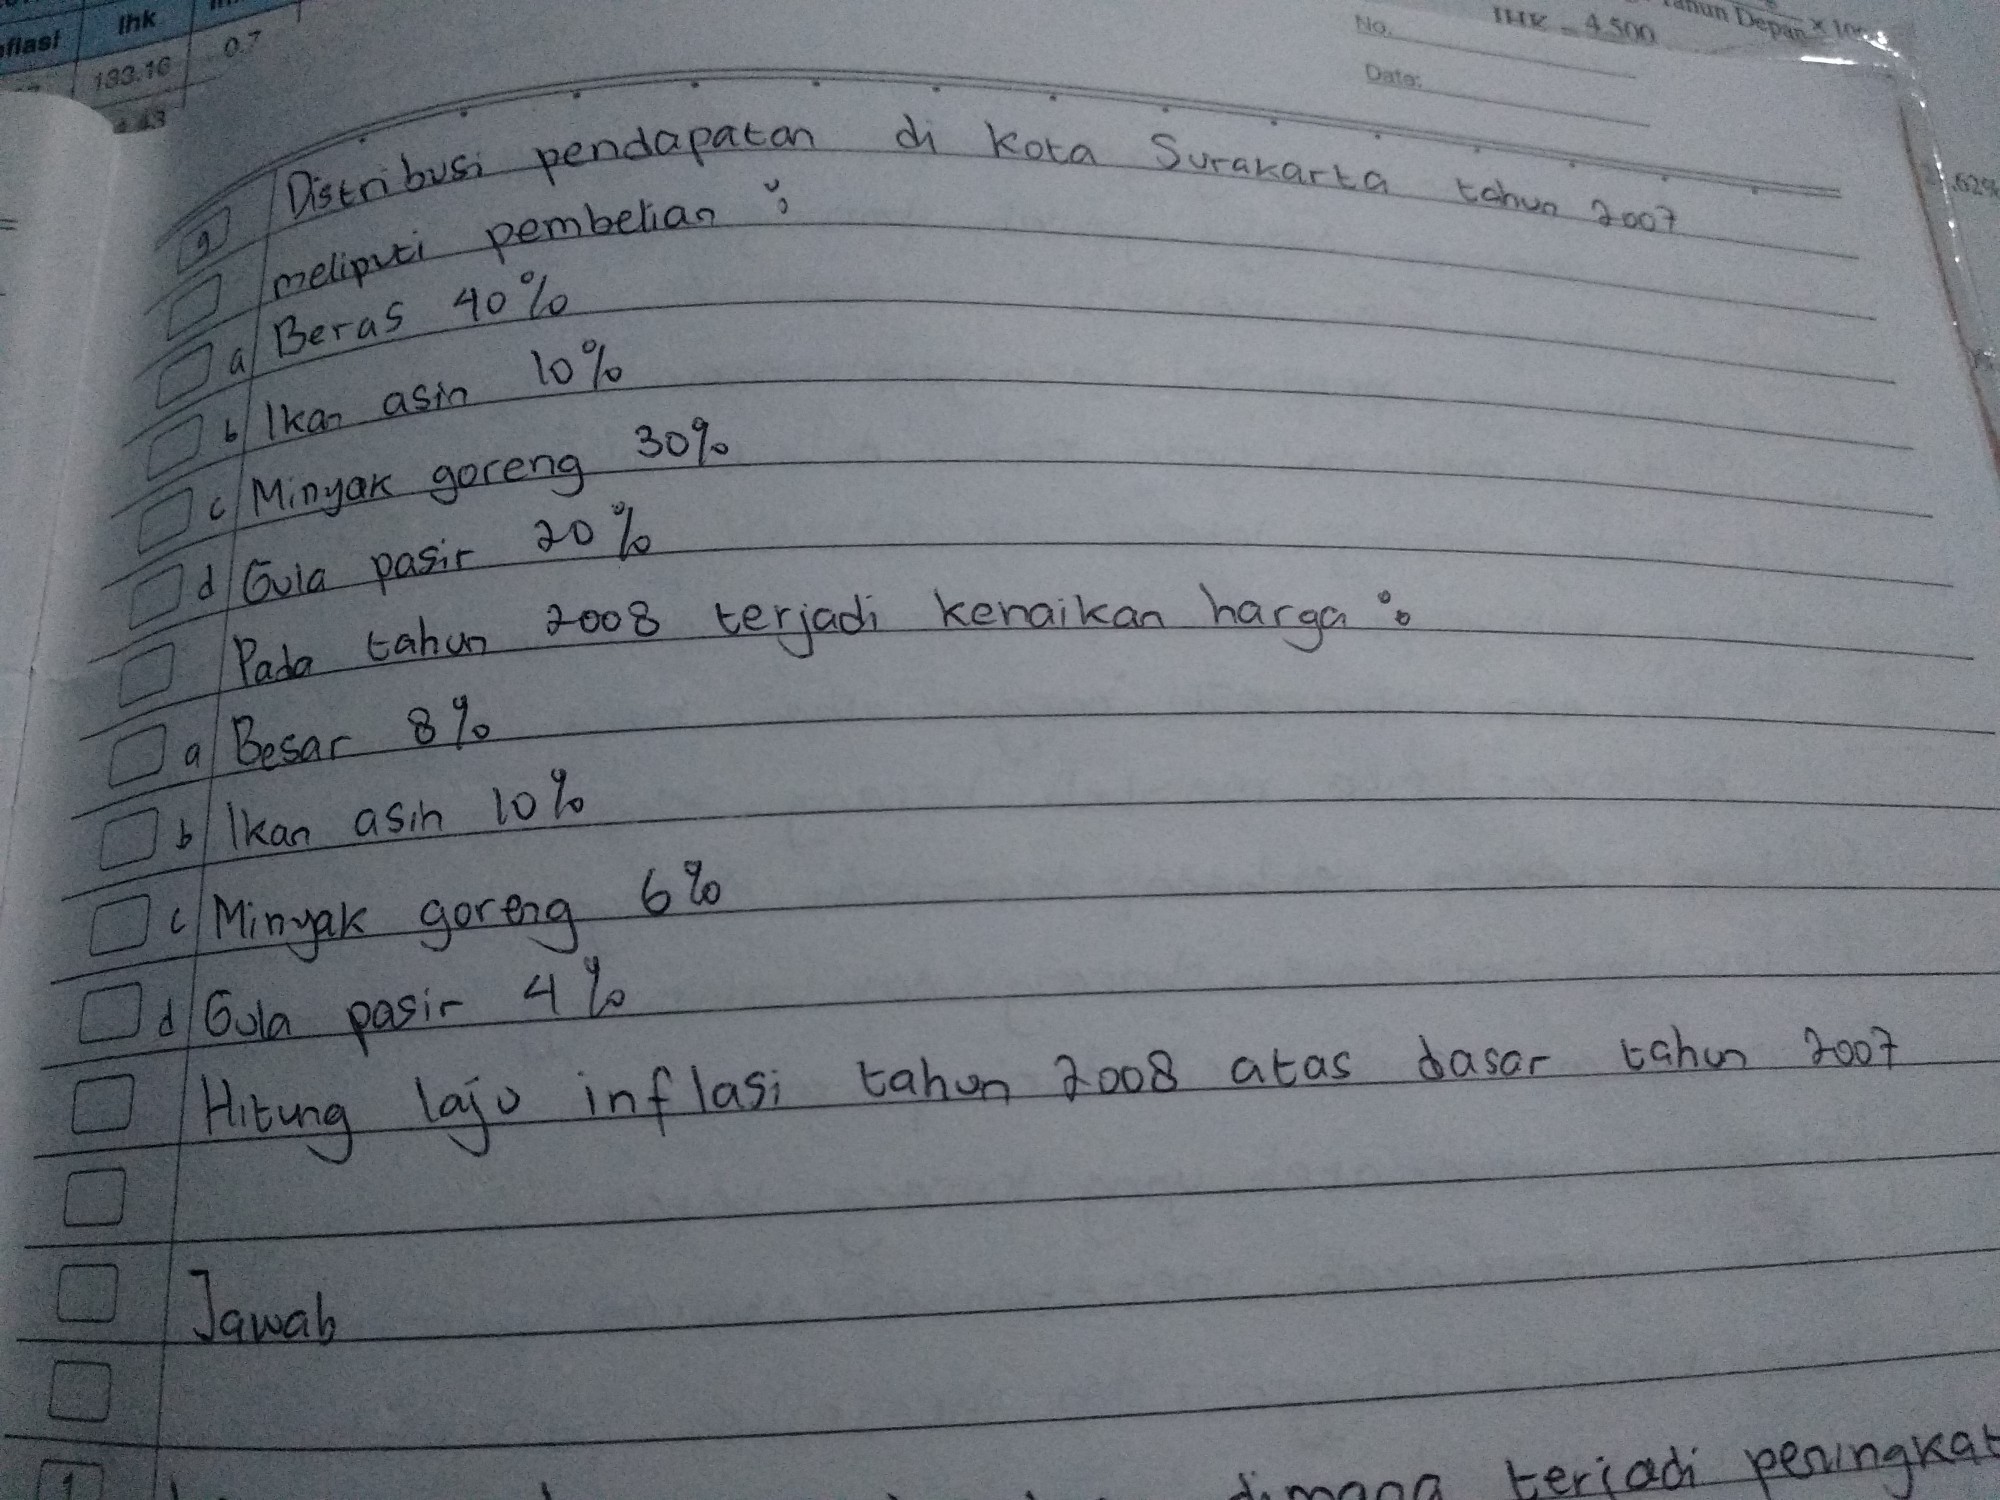 Ihk
133.16
0.7
4.43
IHK = 4.500
Tahun Depan × 100
No.
Date:
.62%
9 Distribusi pendapatan di Kota Surakarta tahun 2007
meliputi pembelian :
a Beras 40%
b Ikan asin 10%
c Minyak goreng 30%
d Gula pasir 20%
Pada tahun 2008 terjadi kenaikan harga :
a Besar 8%
b Ikan asih 10%
c Minyak goreng 6%
d Gula pasir 4%
Hitung laju inflasi tahun 2008 atas dasar tahun 2007
Jawab
1 dimana terjadi peningkat